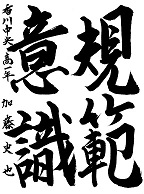 規範
意識
香川中央高一年
加藤史也